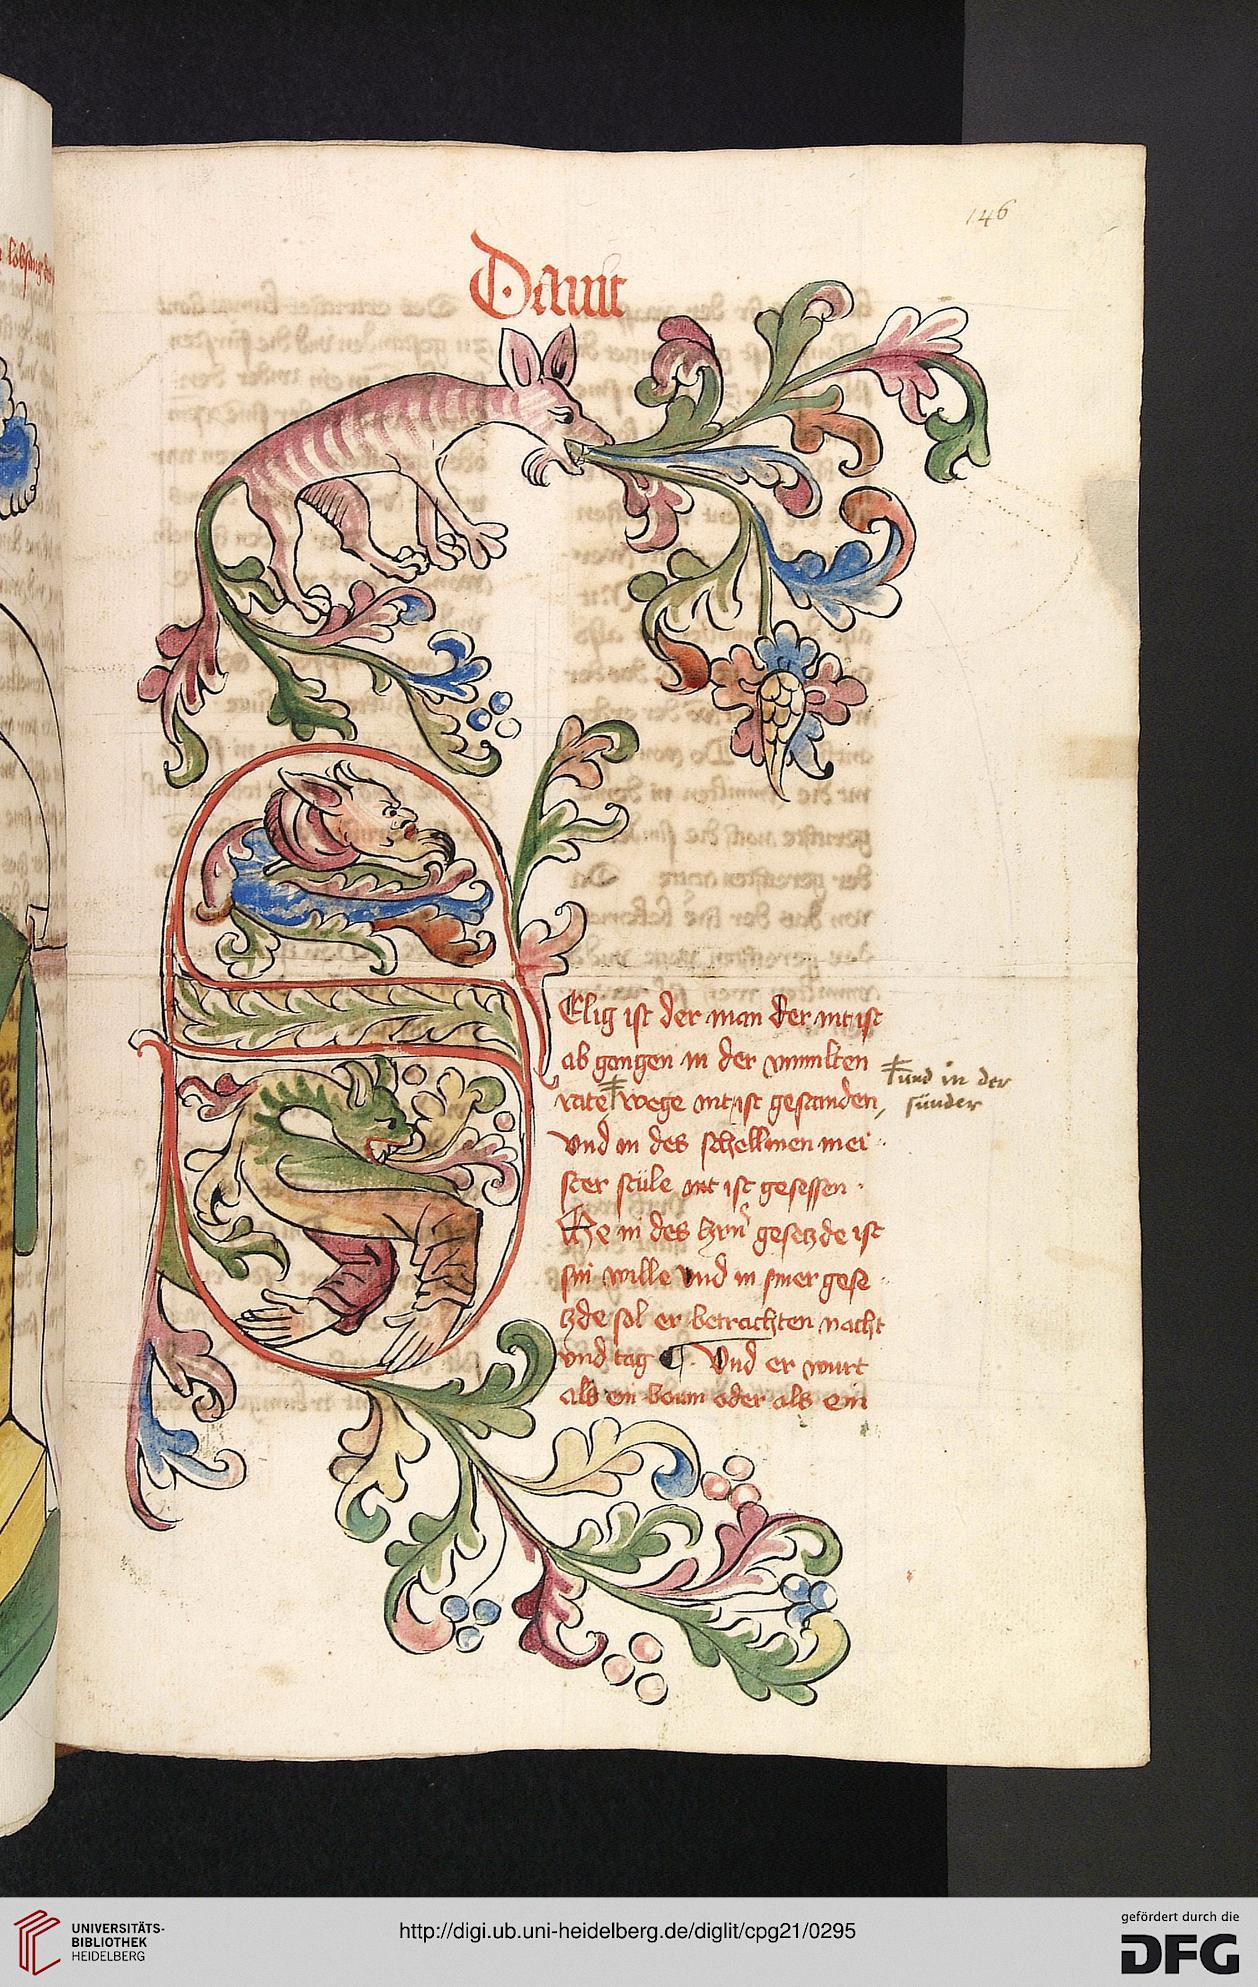 146
Dauit
SElig ist der man der nit ist
ab gangen in der vnmilten
rate wege nit ist gestanden
vnd in des schellmen mei
ster stüle nit ist gesessen
in des herren gesetzde ist
sin wille vnd in siner gese
tzde sol er betrachten nacht
vnd tag Vnd er wurt
als ein boum oder als ein
und in der
sünder
UNIVERSITÄTS-
BIBLIOTHEK
HEIDELBERG
http://digi.ub.uni-heidelberg.de/diglit/cpg21/0295
gefördert durch die
DFG